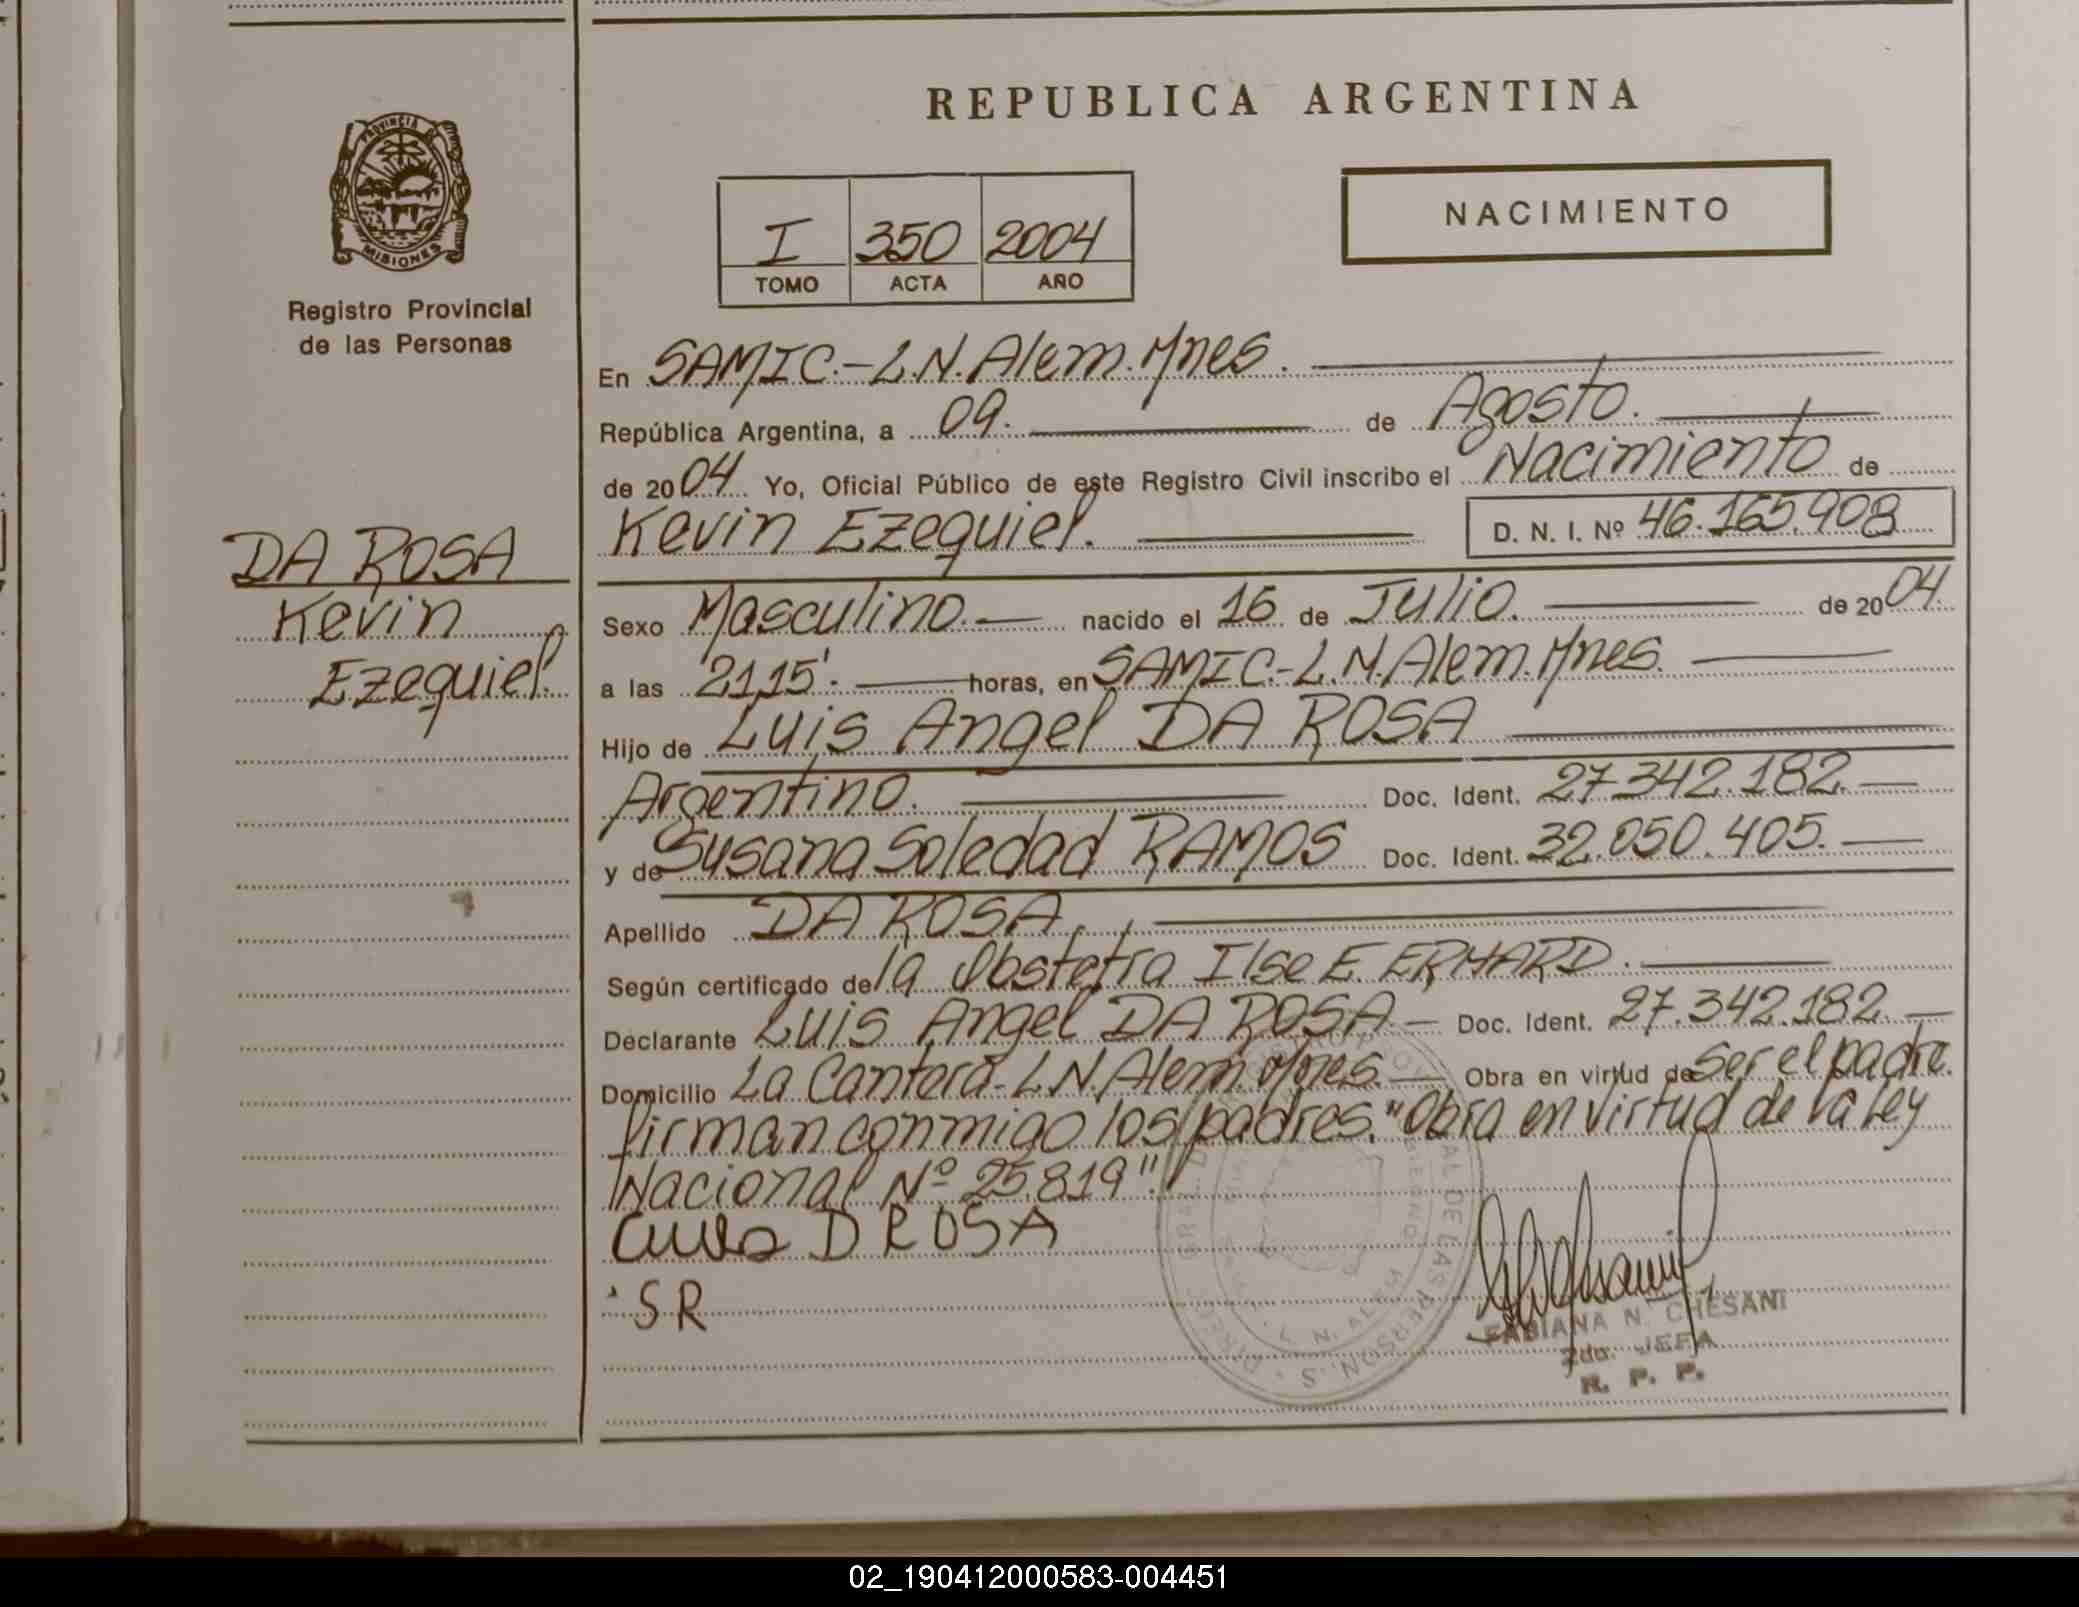 REPUBLICA ARGENTINA
PROVINCIA DE
MISIONES
Registro Provincial
de las Personas
I 350 2004
TOMO ACTA AÑO
NACIMIENTO
En SAMIC.-L.N.Alem.Mnes.
República Argentina, a 09. de Agosto.
de 2004 Yo, Oficial Público de este Registro Civil inscribo el Nacimiento de
Kevin Ezequiel. D. N. I. Nº 46.165.908
DA ROSA
Kevin
Ezequiel.
Sexo Masculino.— nacido el 16 de Julio. de 2004
a las 21,15'. horas, en SAMIC.-L.N.Alem.Mnes.
Hijo de Luis Angel DA ROSA
Argentino. Doc. Ident. 27.342.182.—
y de Susana Soledad RAMOS Doc. Ident. 32.050.405.—
Apellido DA ROSA.
Según certificado de la Obstetra Ilse E. ERHARD.
Declarante Luis Angel DA ROSA.— Doc. Ident. 27.342.182.—
Domicilio La Cantera-L.N.Alem.Mnes.— Obra en virtud de Ser el padre.
firman conmigo los padres."Obra en virtud de la ley
Nacional Nº 25.819".
D ROSA
SR
FABIANA N. CHESANI
2da. JEFA
R. P. P.
02_190412000583-004451